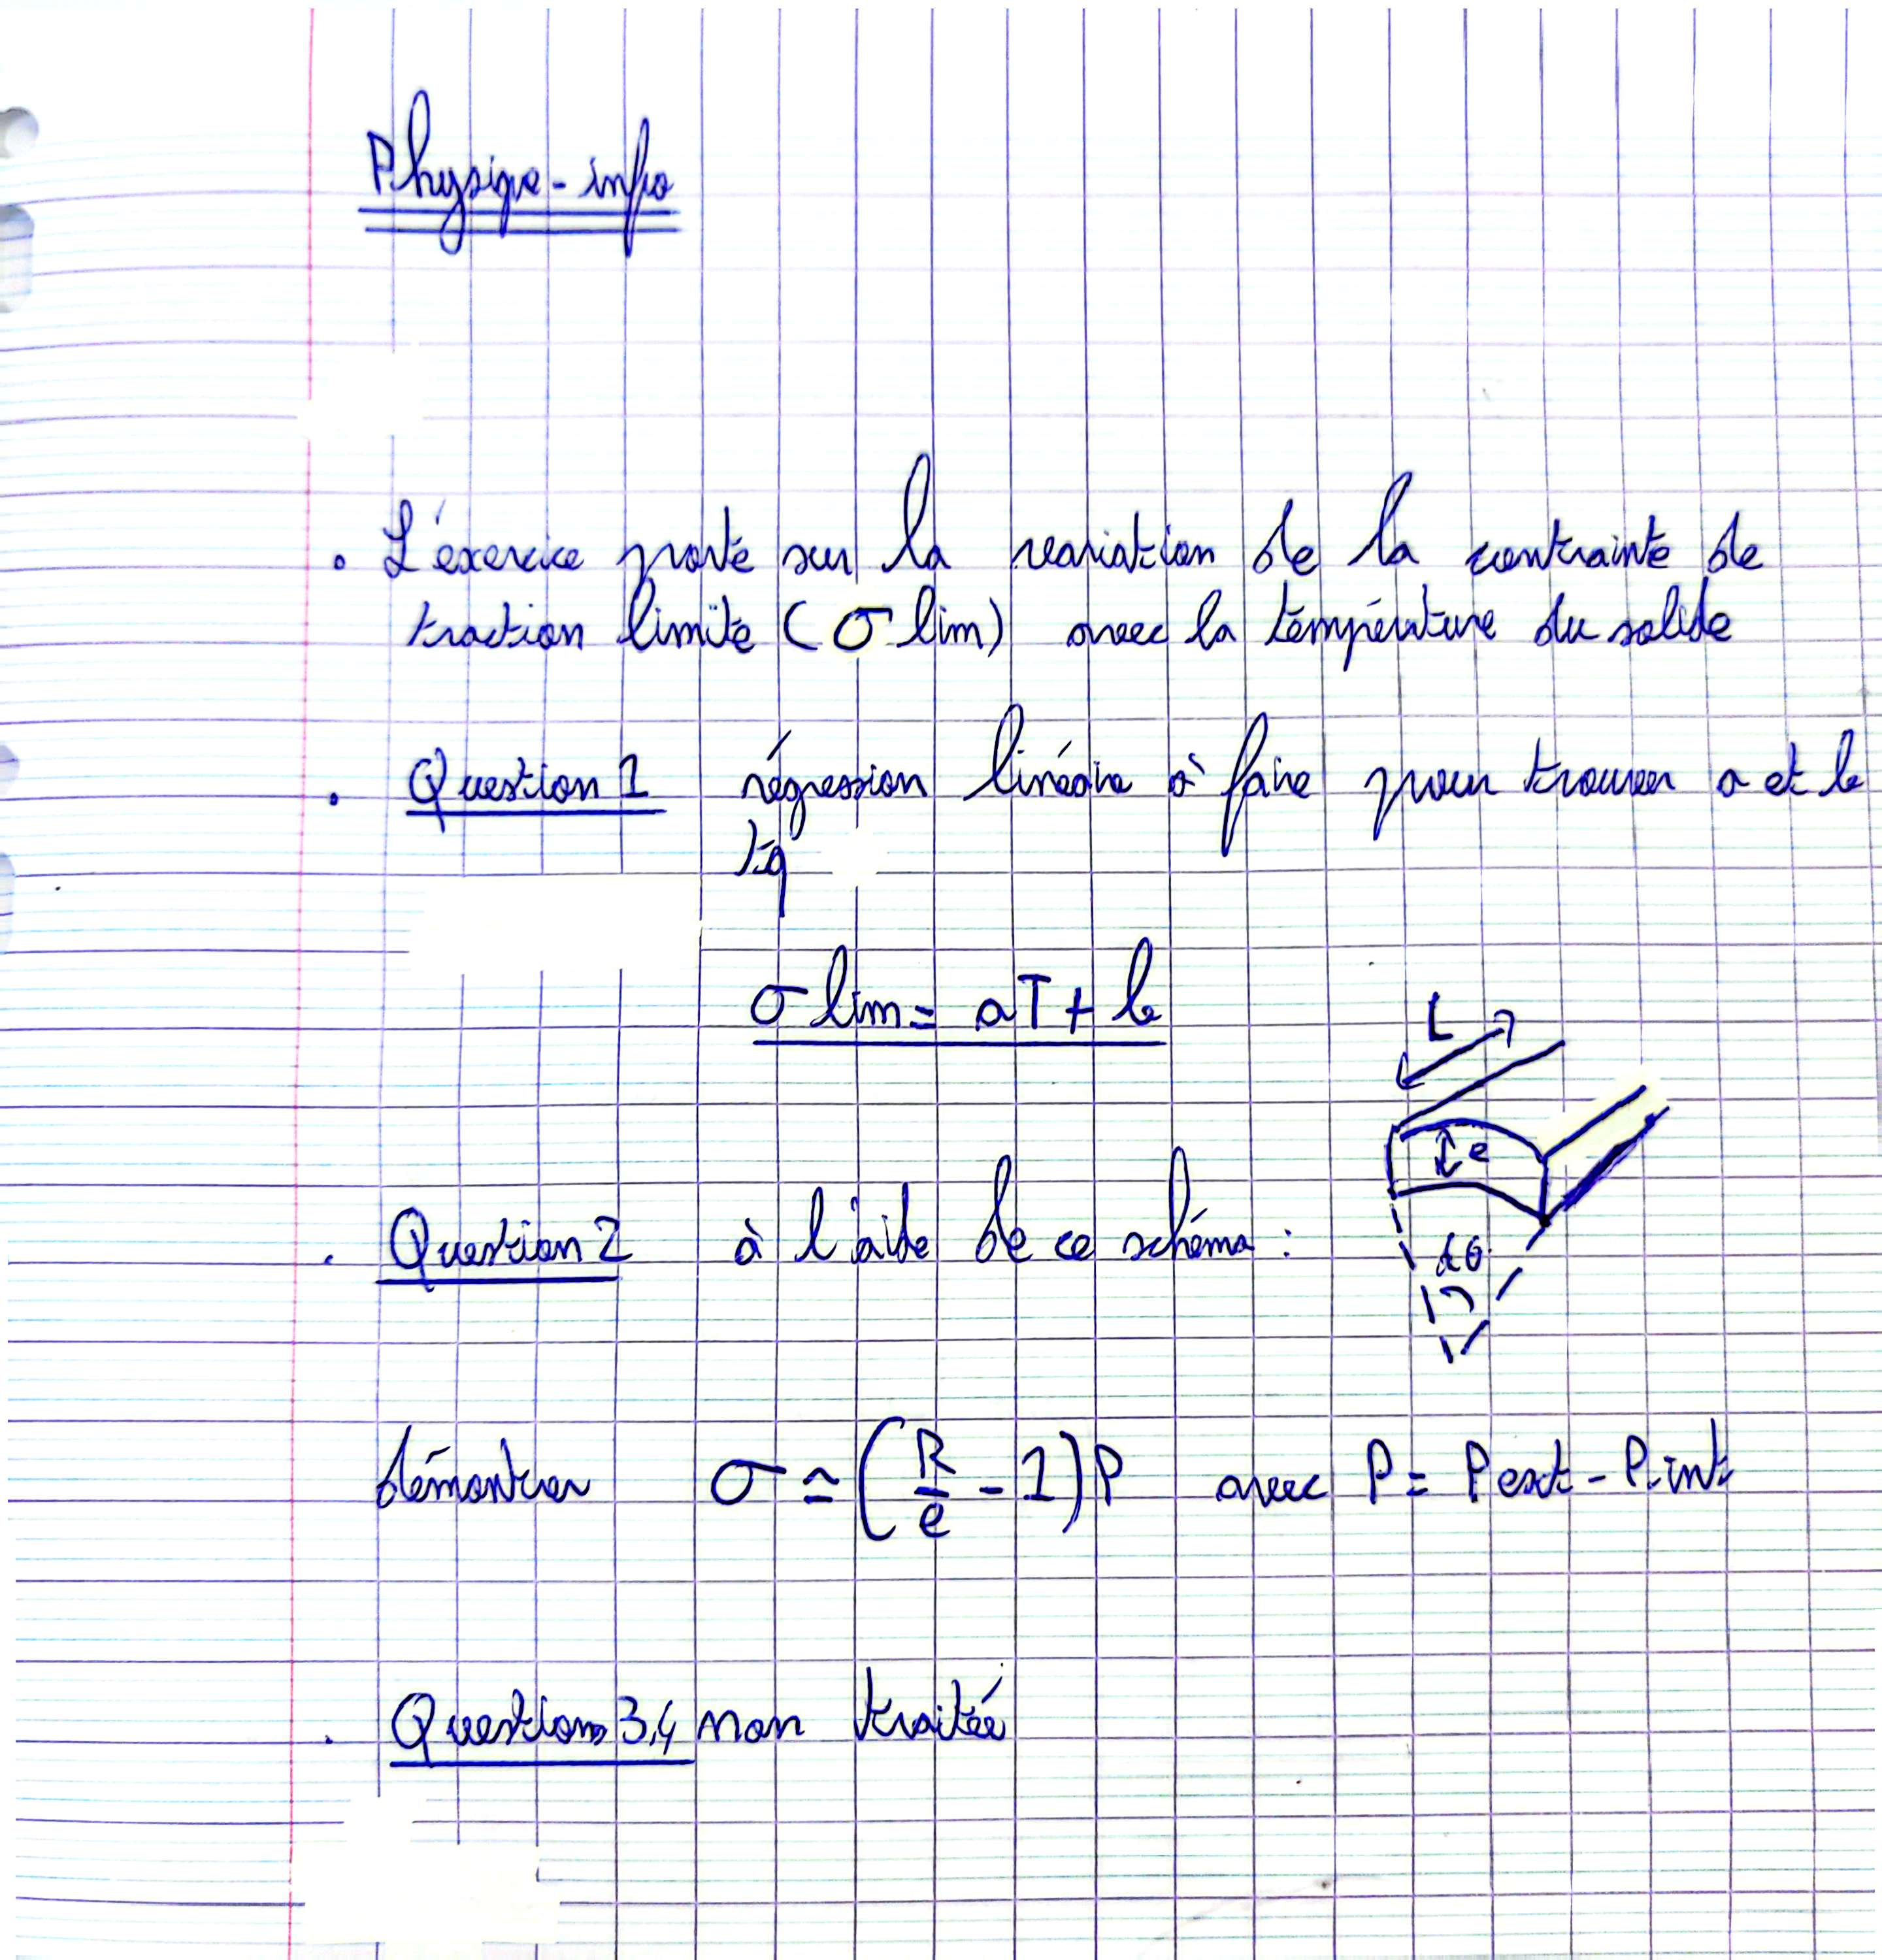 Physique-info
. L'exercice porte sur la variation de la contrainte de
traction limite (σ lim) avec la température du solide
. Question 1 régression linéaire à faire pour trouver a et b
tq
σ lim = aT + b
L
e
. Question 2 à l'aide de ce schéma :
dθ
démontrer σ ≃ (R/e - 1)P avec P = Pext - Pint
. Questions 3,4 non traitée